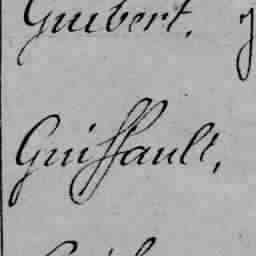 Guibert.
Guiffault,